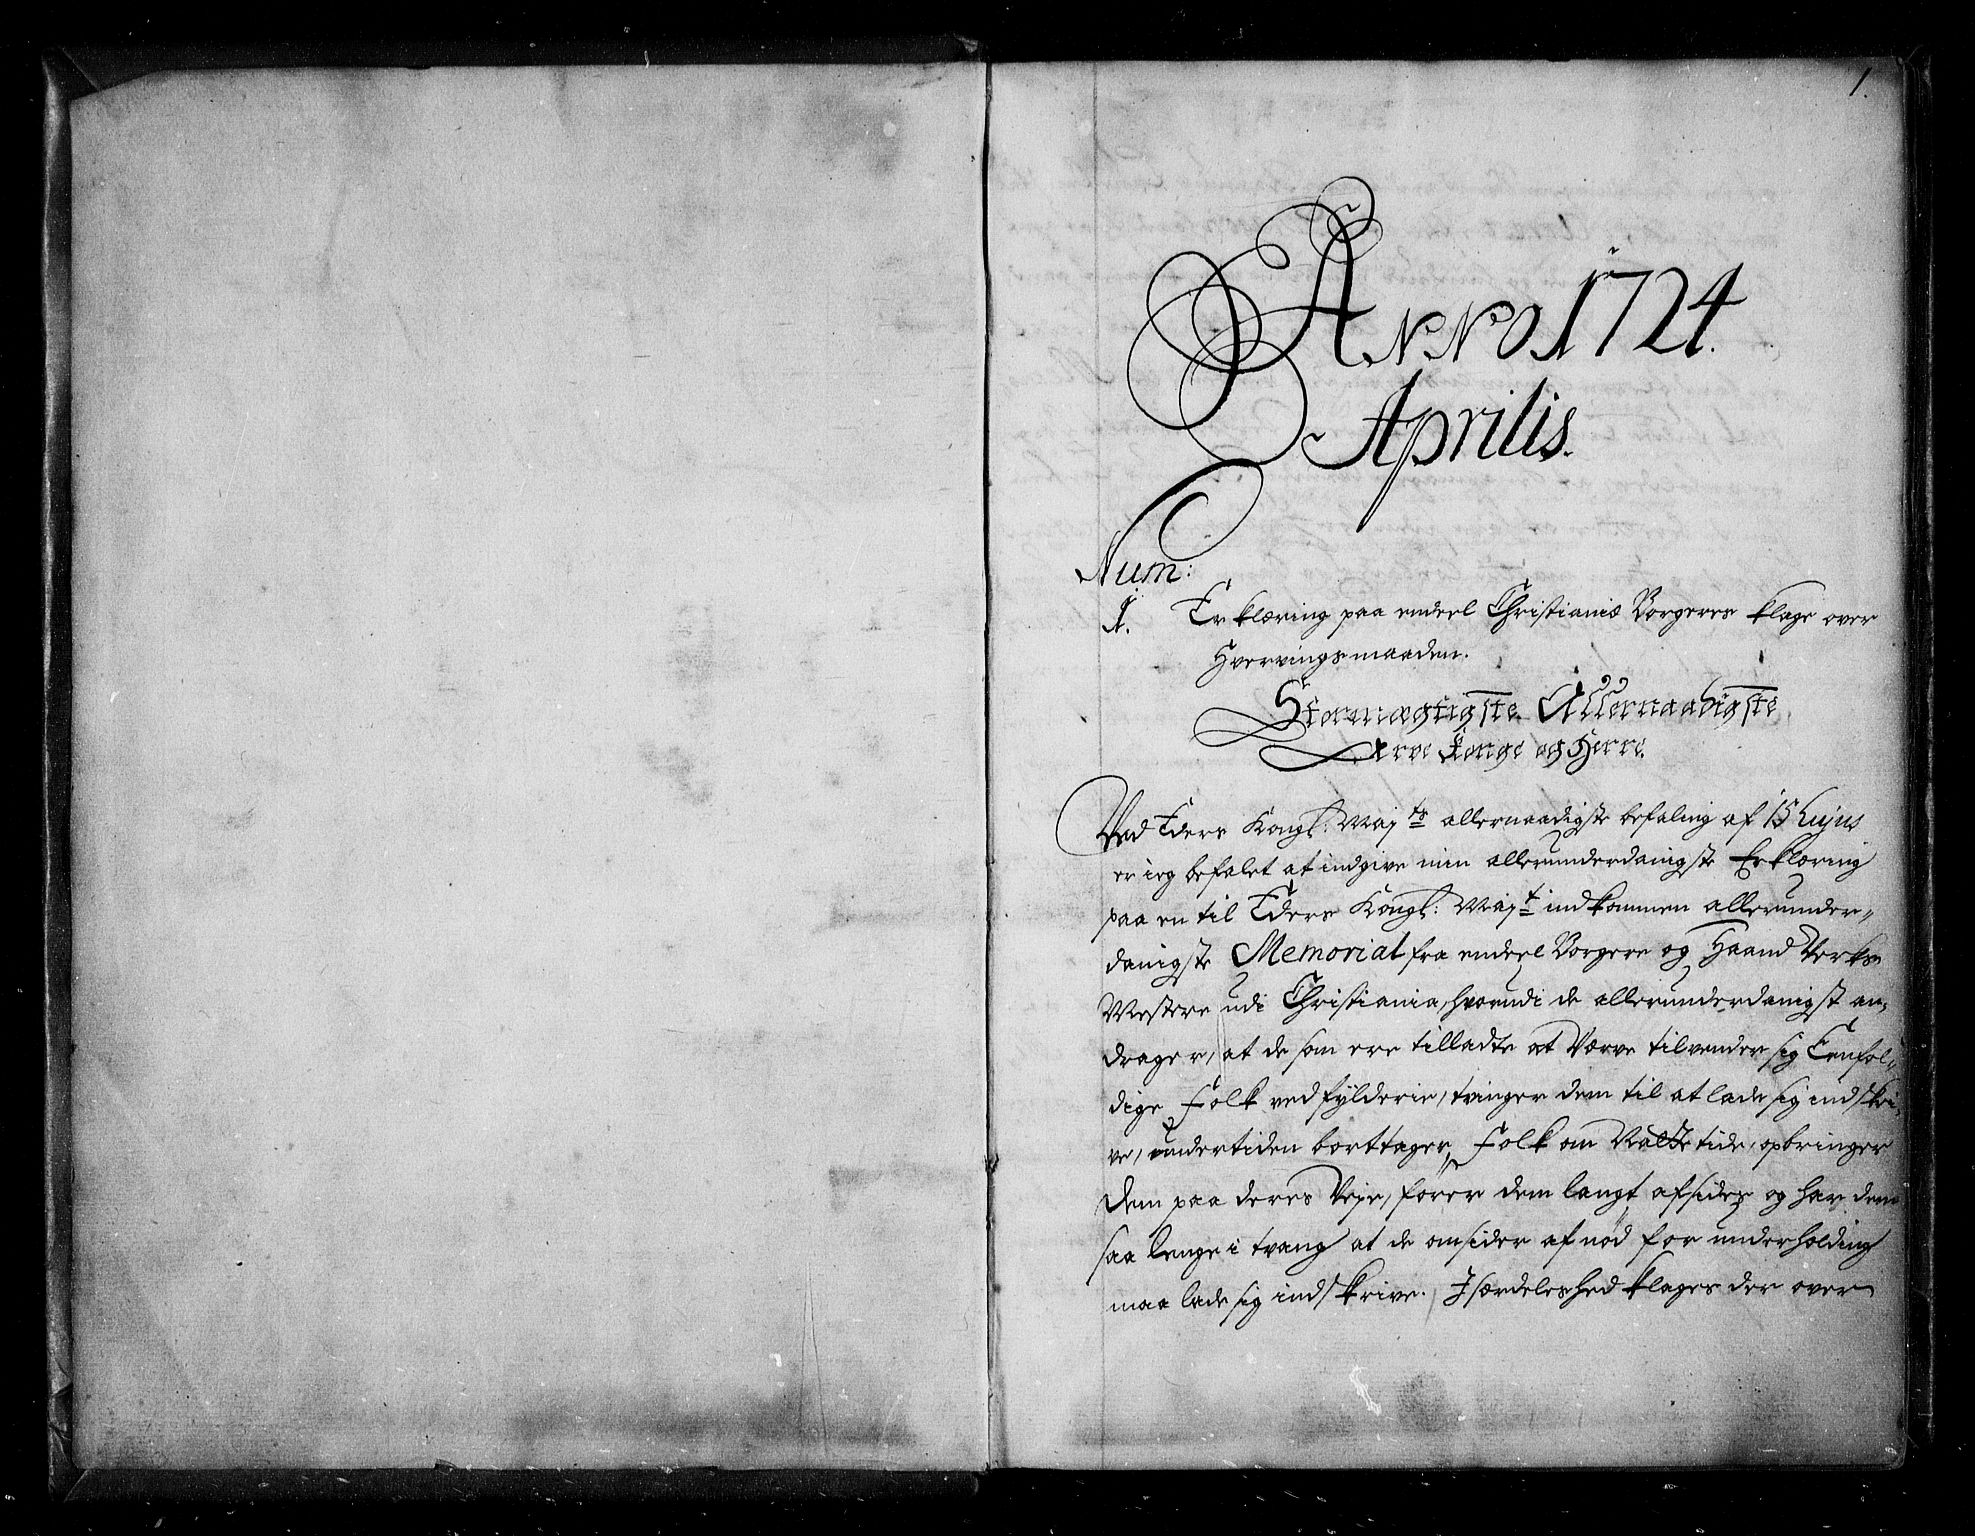 1.
Anno 1724.
Aprilis.
Num:
1. Erklæring paa endeel Christianiæ Borgeres klage over
Hvervings maaden.
Stormægtigste Allernaadigste
Arve Konge og Herre.
Ved Eders Kongl: Maj:ts allernaadigste befaling af 15 hujus
er ieg befalet at indgive min allerunderdanigste Erklæring
paa en til Eders Kongl: Maj:t indkommen allerunder-
danigste Memorial fra endeel Borgere og Haand Verks
Mestere udi Christiania, hvorudi de allerunderdanigst an-
drager, at de som ere tilladte at Værve tilvender sig Eenfol-
dige Folk ved fylderie, tvinger dem til at lade sig indskri-
ve, undertiden borttager Folk om Natte tide, opbringer
dem paa deres Veje, fører dem langt afsides og har dem
saa lenge i tvang at de omsider af nød for underholding
maa lade sig indskrive. Isærdeleshed klages der over